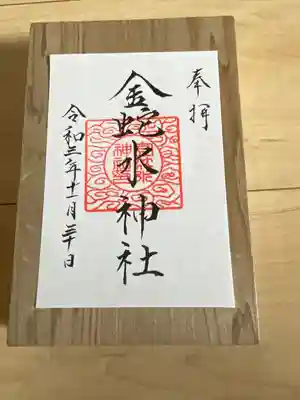 奉拝
金蛇水神社
令和三年十一月三十日